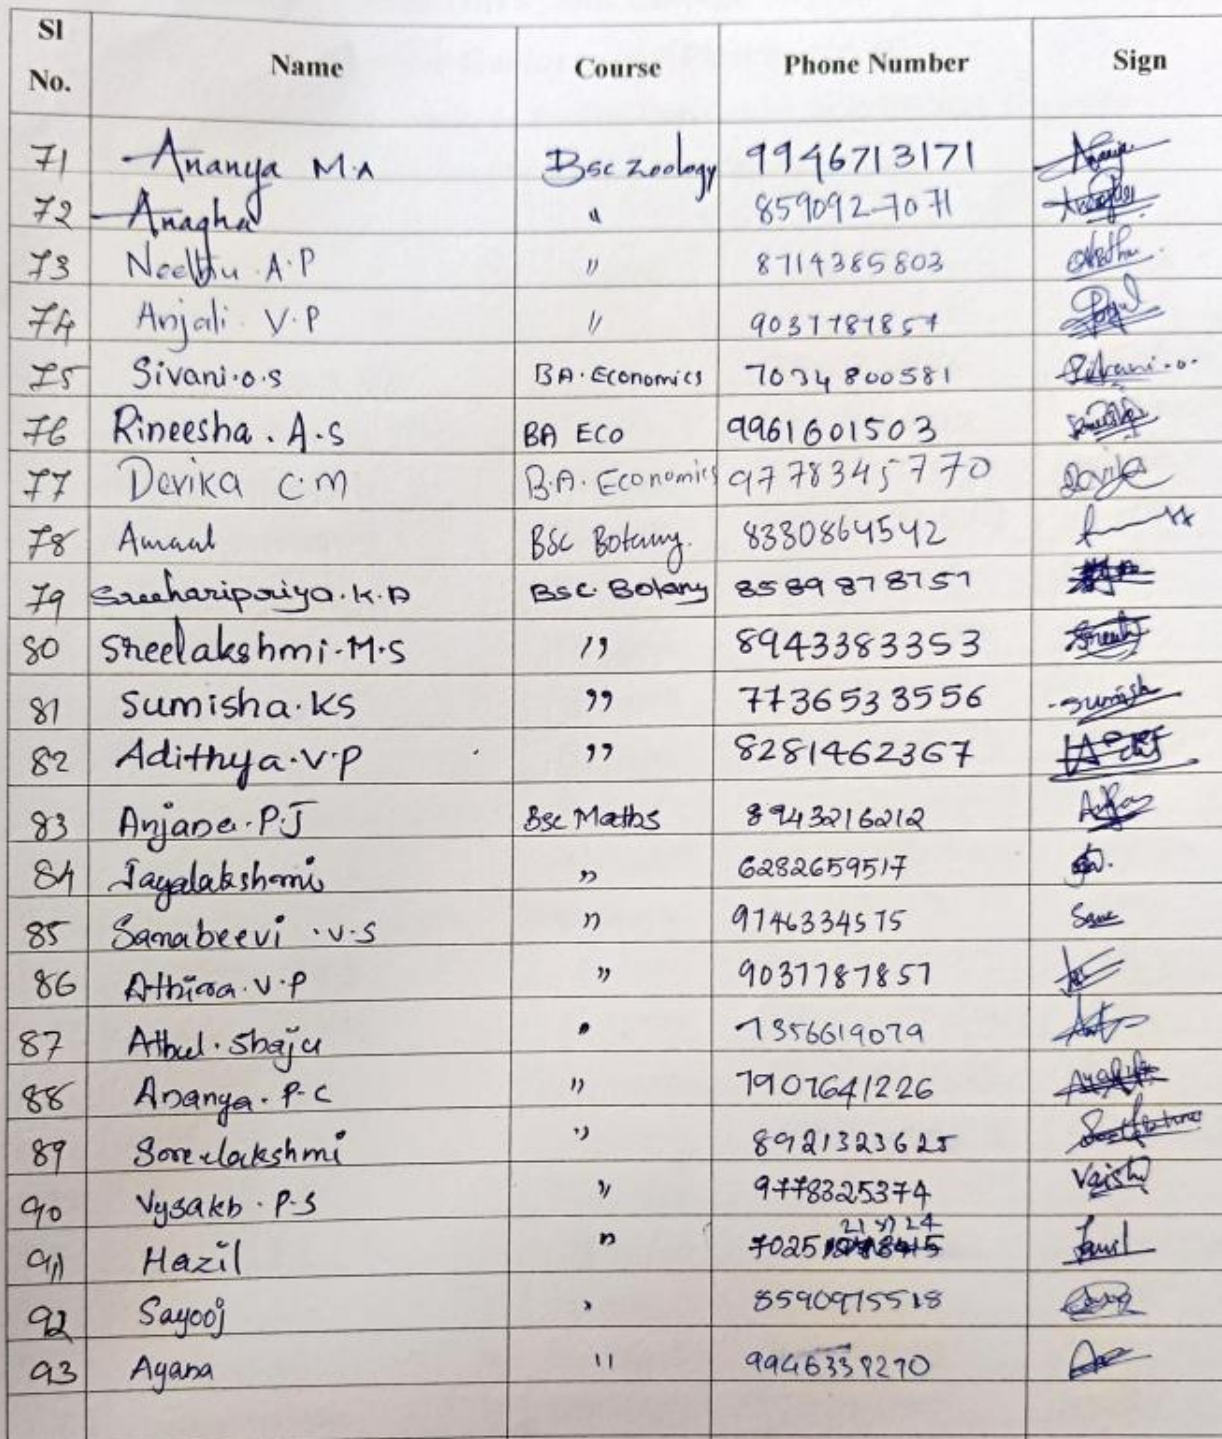 Sl No. Name Course Phone Number Sign
71 Ananya M.A Bsc Zoology 9946713171
72 Anagha " 8590927071
73 Neethu A.P " 8714385803
74 Anjali V.P " 9037787857
75 Sivani.o.s BA.Economics 7034800581 Sivani.o.
76 Rineesha.A.S BA ECO 9961601503
77 Devika C.M B.A. Economics 9778345770 Devika
78 Amaal BSc Botany. 8330864542
79 Sreeharipriya.K.P BSC.Botany 8589878757
80 Sreelakshmi.M.S " 8943383353
81 Sumisha.KS " 7736533556
82 Adithya.V.P " 8281462367
83 Anjana.P.J Bsc Maths 8943216212
84 Jayalakshmi " 6282659517
85 Sanabeevi .V.S " 9746334575
86 Athira.V.P " 9037787857
87 Athul.Shaju " 7356619079
88 Ananya.P.C " 7907641226
89 Sreelakshmi " 8921323625
90 Vysakh.P.S " 9778325374
91 Hazil " 70251
92 Sayooj " 8590975518
93 Ayana "